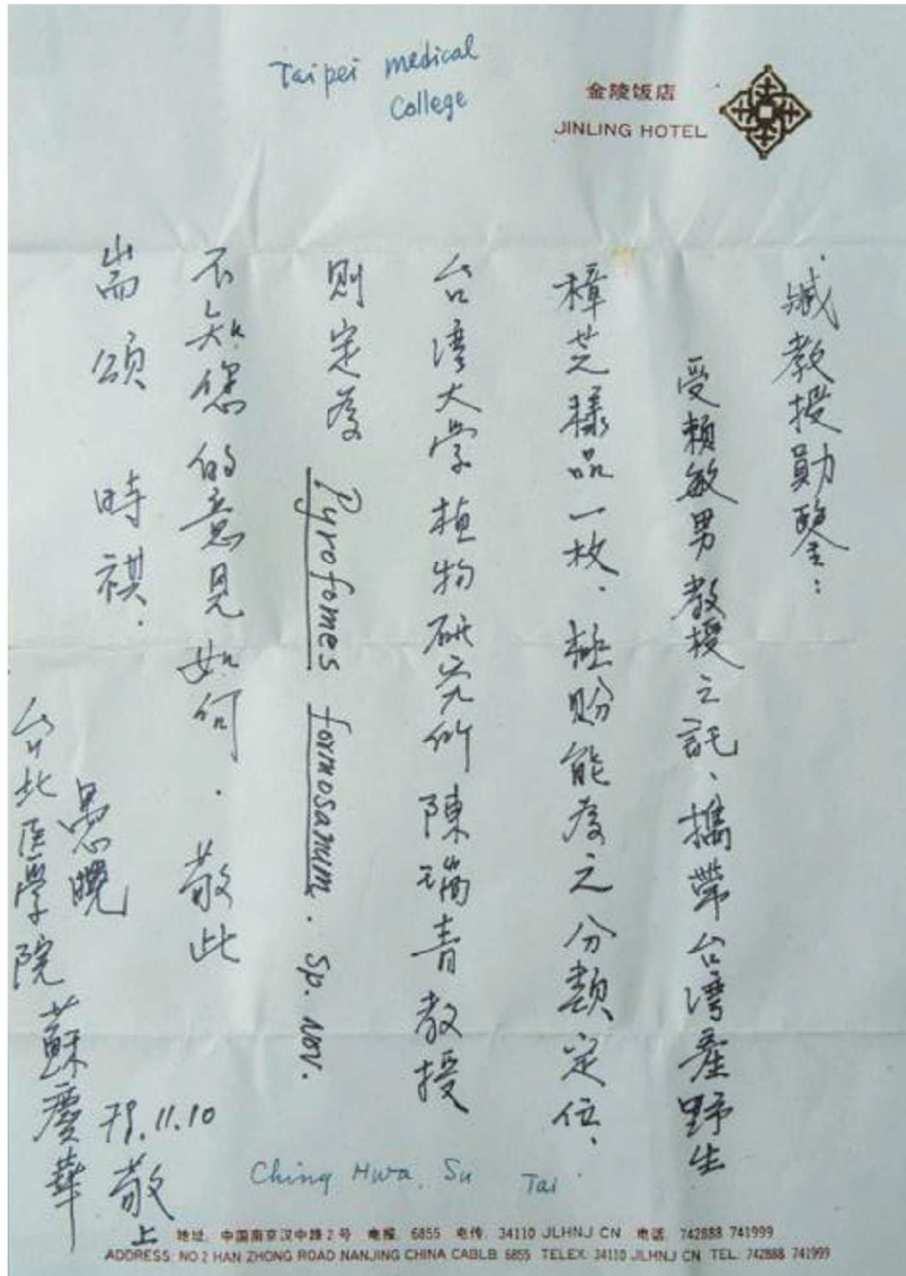 Taipei medical
College
金陵饭店
JINLING HOTEL
臧教授勛鑒：
受賴敏男教授之託、攜帶台灣產野生
樟芝樣品一枚、極盼能為之分類定位、
台灣大学植物研究所陳瑞青教授
則定為 Pyrofomes formosanum. sp. nov.
不知您的意見如何. 敬此
耑頌 時祺.
愚晚
台北医學院 蘇慶華 敬上
79.11.10
Ching Hwa, Su Tai
地址. 中国南京汉中路2号 电报. 6855 电传. 34110 JLHNJ CN 电话. 742888 741999
ADDRESS: NO 2 HAN ZHONG ROAD NANJING CHINA CABLB 6855 TELEX: 34110 JLHNJ CN TEL. 742888 741999